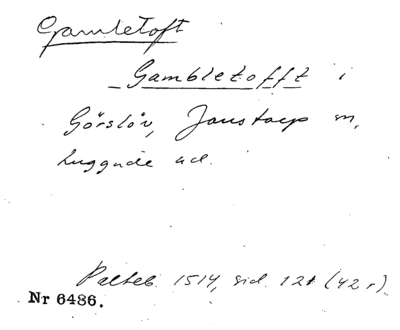 Gamletoft
Gambletofft i
Görslöv, Jonstorp sn,
Luggude hd.
Palteb. 1514, sid. 121 (42 r)
Nr 6486.